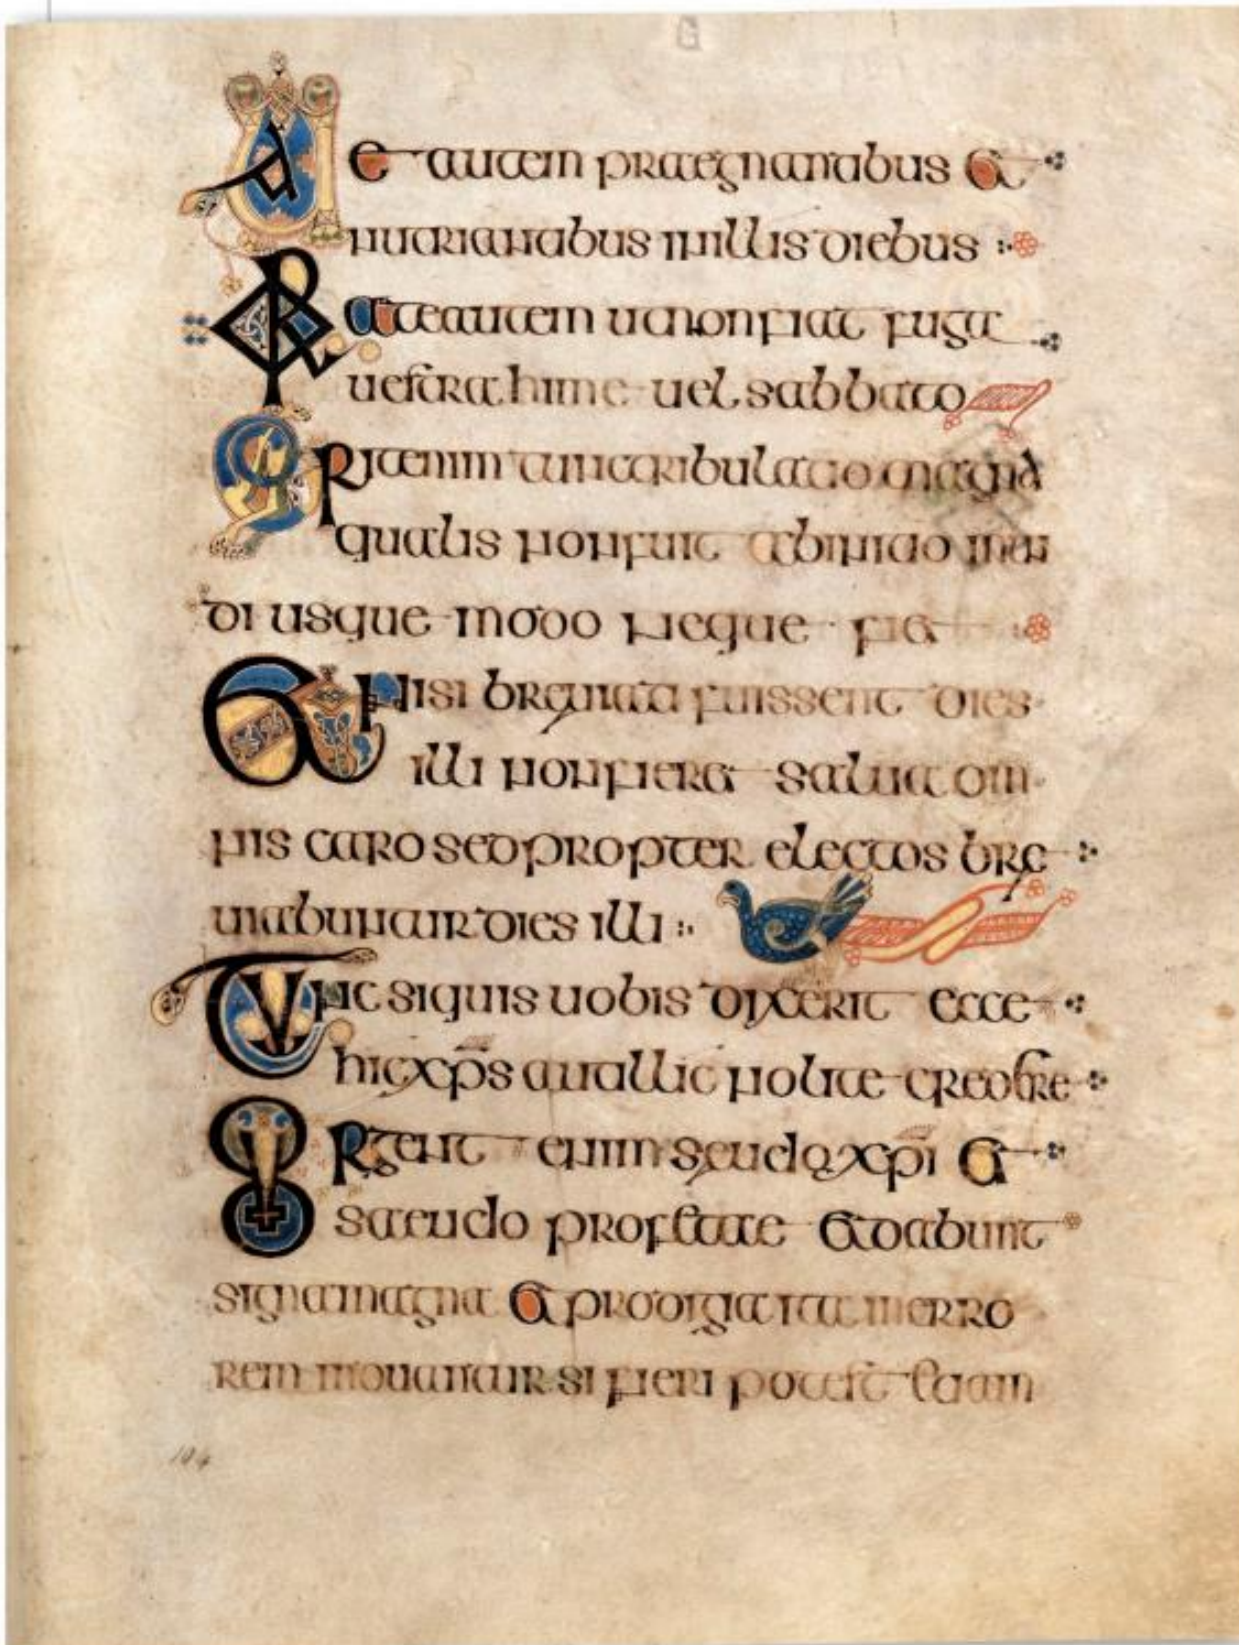 Uae autem praegnantibus et
nutriantibus in illis diebus
Orate autem ut non fiat fuga
uestra hime uel sabbato
Erit enim tunc tribulatio magna
qualis non fuit ab initio mun
di usque modo neque fiet
Et nisi breuiati fuissent dies
illi non fieret salua om
nis caro sed propter electos bre
uiabuntur dies illi
Tunc siquis uobis dixerit ecce
hic xps aut illic nolite credere
Surgent enim seudo xpi et
saeudo profetae et dabunt
signa magna et prodigia ita in erro
rem mouantur si fieri potest etiam
194